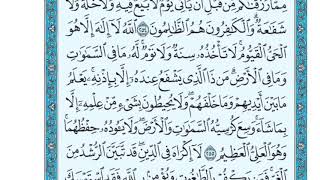 مِمَّا رَزَقْنَٰكُم مِّن قَبْلِ أَن يَأْتِىَ يَوْمٌ لَّا بَيْعٌ فِيهِ وَلَا خُلَّةٌ وَلَا
شَفَٰعَةٌ ۗ وَٱلْكَٰفِرُونَ هُمُ ٱلظَّٰلِمُونَ ﴿٢٥٤﴾ ٱللَّهُ لَآ إِلَٰهَ إِلَّا هُوَ
ٱلْحَىُّ ٱلْقَيُّومُ ۚ لَا تَأْخُذُهُۥ سِنَةٌ وَلَا نَوْمٌ ۚ لَّهُۥ مَا فِى ٱلسَّمَٰوَٰتِ
وَمَا فِى ٱلْأَرْضِ ۗ مَن ذَا ٱلَّذِى يَشْفَعُ عِندَهُۥٓ إِلَّا بِإِذْنِهِۦ ۚ يَعْلَمُ
مَا بَيْنَ أَيْدِيهِمْ وَمَا خَلْفَهُمْ ۖ وَلَا يُحِيطُونَ بِشَىْءٍ مِّنْ عِلْمِهِۦٓ إِلَّا
بِمَا شَآءَ ۚ وَسِعَ كُرْسِيُّهُ ٱلسَّمَٰوَٰتِ وَٱلْأَرْضَ ۖ وَلَا يَـُٔودُهُۥ حِفْظُهُمَا ۚ
وَهُوَ ٱلْعَلِىُّ ٱلْعَظِيمُ ﴿٢٥٥﴾ لَآ إِكْرَاهَ فِى ٱلدِّينِ ۖ قَد تَّبَيَّنَ ٱلرُّشْدُ مِنَ
ٱلْغَىِّ ۚ فَمَن يَكْفُرْ بِٱلطَّٰغُوتِ وَيُؤْمِنۢ بِٱللَّهِ فَقَدِ ٱسْتَمْسَكَ